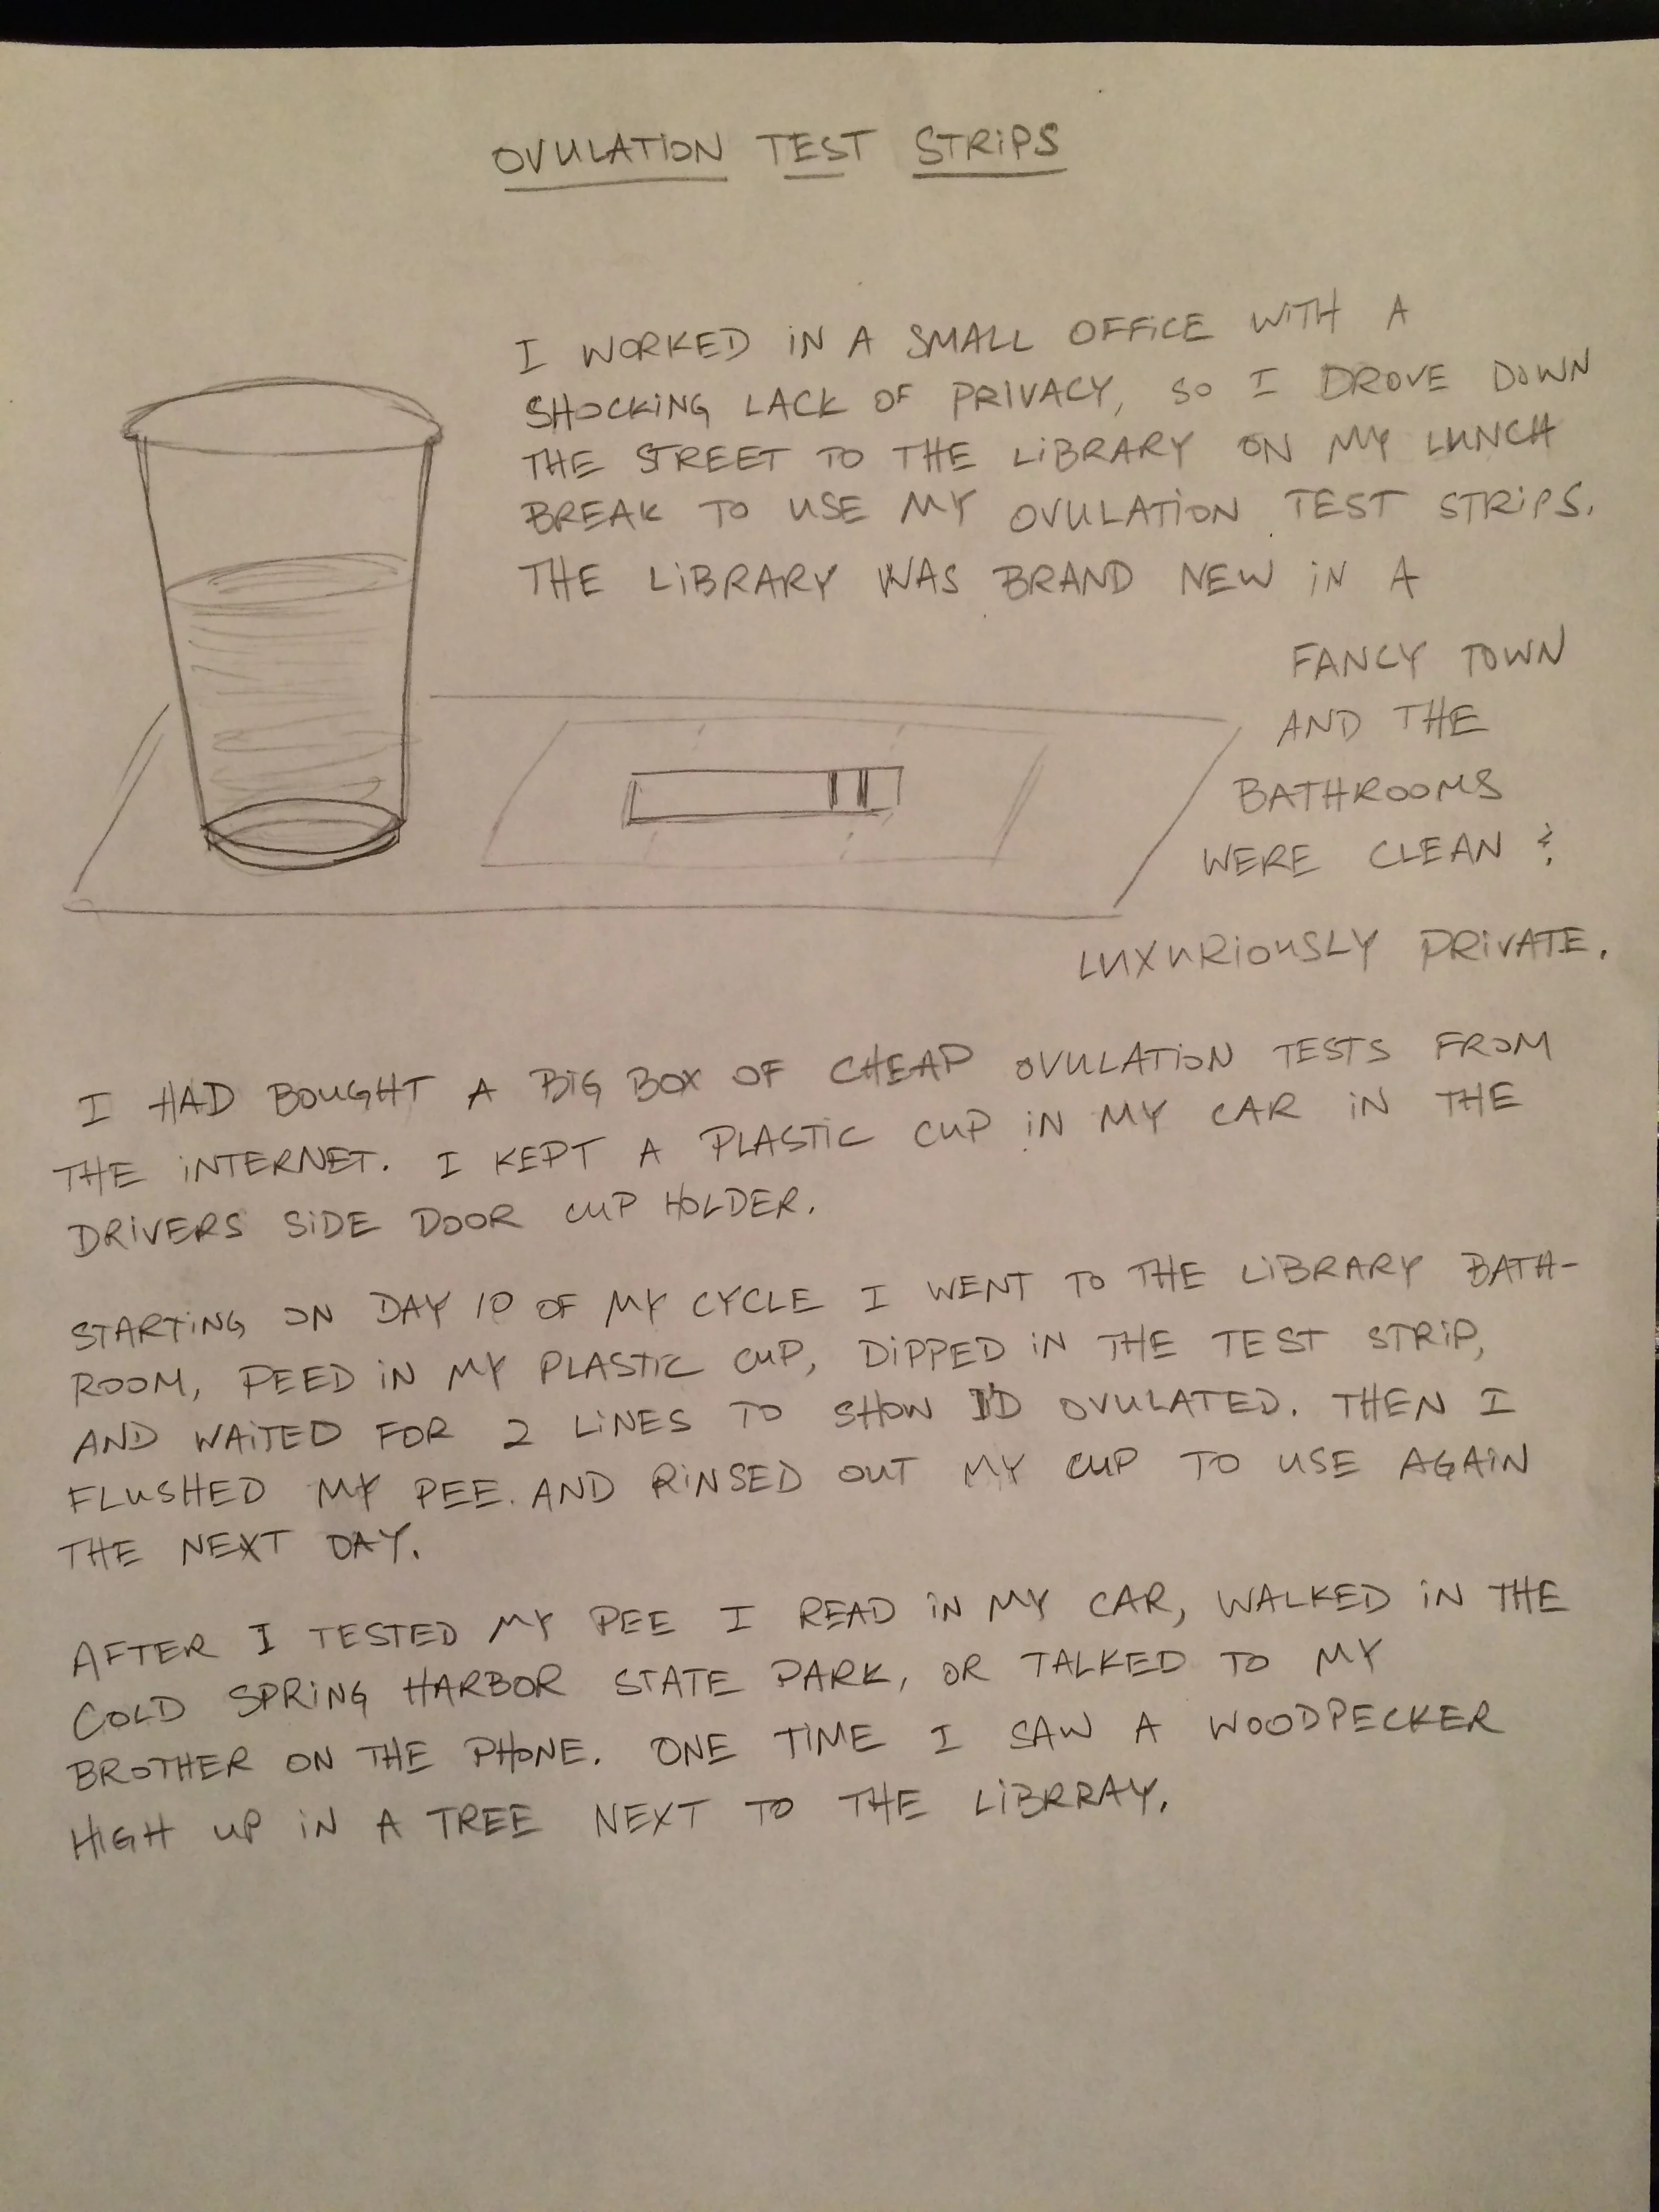 OVULATION TEST STRIPS
I WORKED IN A SMALL OFFICE WITH A
SHOCKING LACK OF PRIVACY, SO I DROVE DOWN
THE STREET TO THE LIBRARY ON MY LUNCH
BREAK TO USE MY OVULATION TEST STRIPS.
THE LIBRARY WAS BRAND NEW IN A
FANCY TOWN
AND THE
BATHROOMS
WERE CLEAN &
LUXURIOUSLY PRIVATE.
I HAD BOUGHT A BIG BOX OF CHEAP OVULATION TESTS FROM
THE INTERNET. I KEPT A PLASTIC CUP IN MY CAR IN THE
DRIVERS SIDE DOOR CUP HOLDER.
STARTING ON DAY 10 OF MY CYCLE I WENT TO THE LIBRARY BATH-
ROOM, PEED IN MY PLASTIC CUP, DIPPED IN THE TEST STRIP,
AND WAITED FOR 2 LINES TO SHOW I'D OVULATED. THEN I
FLUSHED MY PEE. AND RINSED OUT MY CUP TO USE AGAIN
THE NEXT DAY.
AFTER I TESTED MY PEE I READ IN MY CAR, WALKED IN THE
COLD SPRING HARBOR STATE PARK, OR TALKED TO MY
BROTHER ON THE PHONE. ONE TIME I SAW A WOODPECKER
HIGH UP IN A TREE NEXT TO THE LIBRRAY.